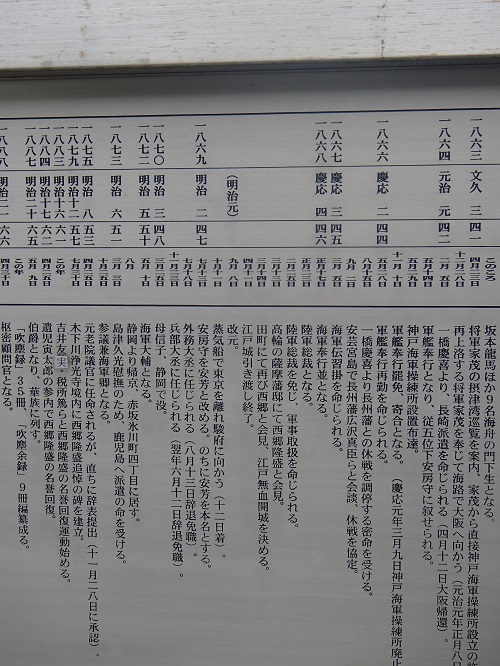 一八六三 文久 三 四一 このころ 坂本龍馬ほか9名海舟の門下生となる。
将軍家茂の摂津湾巡覧を案内、家茂から直接神戸海軍操練所設立の
再上洛する将軍家茂を奉じて海路で大阪へ向かう(元治元年正月八日
一八六四 元治 元 四二 一橋慶喜より、長崎派遣を命じられる(四月十二日大阪帰還)。
五月十四日 軍艦奉行となり、従五位下安房守に叙せられる。
神戸海軍操練所設置布達。
十一月十日 軍艦奉行罷免、寄合となる。(慶応元年三月九日神戸海軍操練所廃止
一八六六 慶応 二 四四 軍艦奉行再勤を命じられる。
一橋慶喜より長州藩との休戦を調停する密命を受ける。
安芸宮島で長州藩広沢真臣らと会談、休戦を協定。
一八六七 慶応 三 四五 海軍伝習掛を命じられる。
一八六八 慶応 四 四六 海軍奉行並となる。
陸軍総裁となる。
陸軍総裁を免じ、軍事取扱を命じられる。
高輪の薩摩藩邸にて西郷隆盛と会見。
田町にて再び西郷と会見、江戸無血開城を決める。
江戸城引き渡し終了。
(明治元) 九月 八日 改元。
蒸気船で東京を離れ駿府に向かう(十二日着)。
一八六九 明治 二 四七 安房守を安芳と改める。のちに安芳を本名とする。
外務大丞に任じられる(八月十三日辞退免職)。
兵部大丞に任じられる(翌年六月十二日辞退免職)。
一八七〇 明治 三 四八 母信子、静岡で没。
一八七二 明治 五 五十 海軍大輔となる。
静岡より帰京、赤坂氷川町四丁目に居す。
一八七三 明治 六 五一 島津久光慰撫のため、鹿児島へ派遣の命を受ける。
参議兼海軍卿となる。
一八七五 明治 八 五三 元老院議官に任命されるが、直ちに辞表提出(十一月二八日に承認)。
一八七九 明治十二 五七 木下川浄光寺境内に西郷隆盛追悼の碑を建立。
一八八三 明治十六 六一 この年 吉井友実、税所篤らと西郷隆盛の名誉回復運動始める。
一八八四 明治十七 六二 遺児寅太郎の参内で西郷隆盛の名誉回復。
一八八七 明治二十 六五 五月 九日 伯爵となり、華族に列す。
この年 「吹塵録」35冊、「吹塵余録」9冊編纂成る。
一八八八 明治二一 六六 四月三十日 枢密顧問官となる。